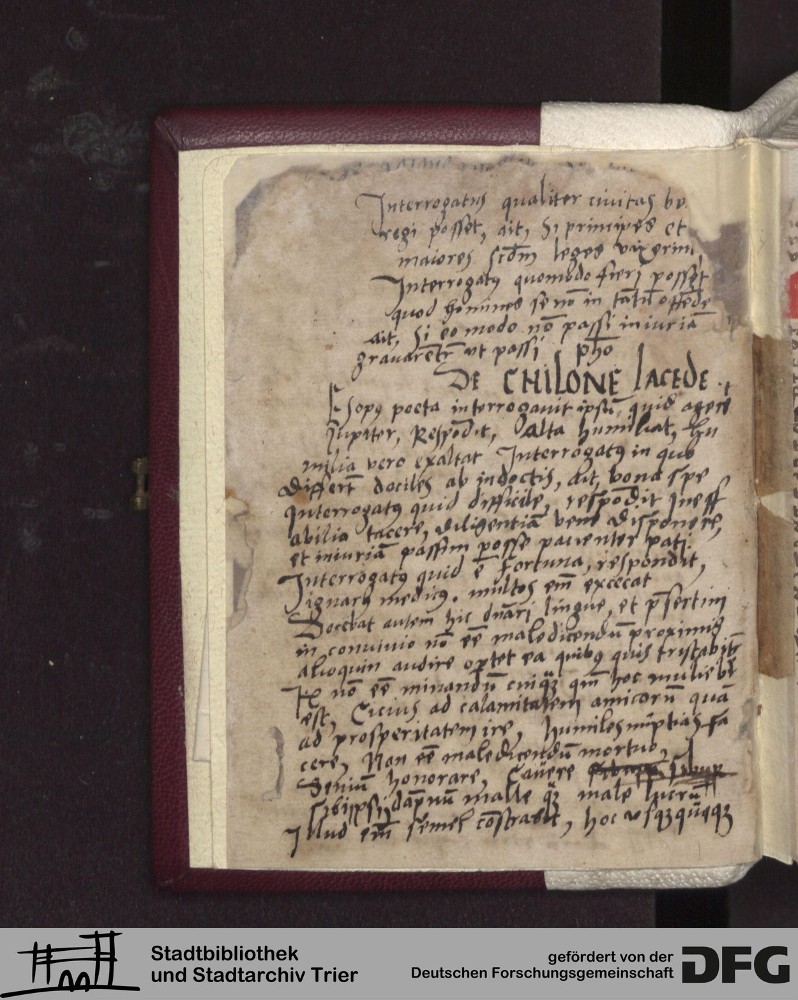 Interrogatus qualiter ciuitas be
regi posset, ait, Si principes et
maiores scd̄m leges vixerint
Interrogatꝰ quomodo fieri posset
quod homines se nō in tātū offēde
ait, Si eo modo nō passi iniuriā
grauarētr̄ ut passi pho
DE CHILONE LACEDE
Esopꝰ poeta interrogauit ipsū, quid ageret
Jupiter, Respōdit, alta humiliat, hu
milia vero exaltat Interrogatꝰ in quo
differūt dociles ab indoctis, ait, bona spe
Interrogatꝰ quid difficile, respōdit Ineff
abilia tacere, diligentiā bene disponere,
et iniuriam passum posse pacienter pati
Interrogatꝰ quid ē fortuna, respondit,
ignarꝰ medicꝰ. multos em̄ excecat
Docebat autem hic dn̄ari lingue, et p̄sertim
in conuiuio nō ēē maledicendū proximis
alioquin audire oportet ea quibꝰ quis tristabitr̄
nō ēē minandū cuiqꝫ qm̄ hoc muliebre
est, Cicius ad calamitatem amicorū quā
ad prosperitatem ire, humiles nuptias fa
cere, Non ēē maledicendū mortuo,
Senium honorare, Cauere
sibiipsi, dāpnū malle qꝫ male lucrū
Illud em̄ semel cōtrabit, hoc vsqꝫquaqꝫ
Stadtbibliothek
und Stadtarchiv Trier
gefördert von der
Deutschen Forschungsgemeinschaft
DFG